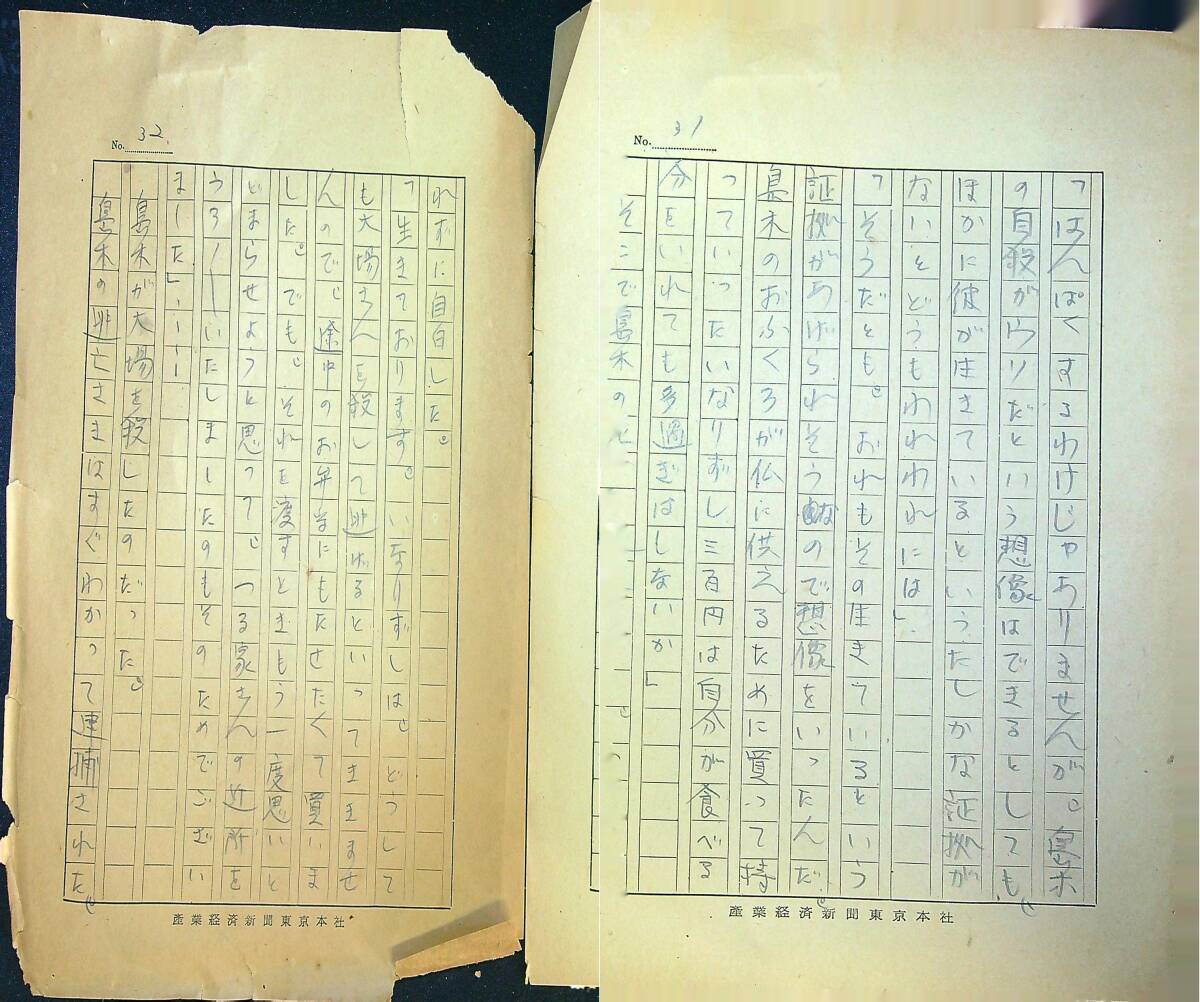 No. 31
「はんぱくするわけじゃありませんが。島木
の自殺がウソだという想像はできるとしても。
ほかに彼が生きているというたしかな証拠が
ないとどうもわれわれには」
「そうだとも。おれもその生きているという
証拠があげられそうなので想像をいったんだ。
島木のおふくろが仏に供えるために買って持
っていったいなりずし三百円は自分が食べる
分をいれても多過ぎはしないか」
そこで島木の
産業経済新聞東京本社
No. 32
れずに自白した。
「生きております。いなりずしは。どうして
も大場さんを殺して逃げるといってききませ
んので。途中のお弁当にもたせたくて買いま
した。でも。それを渡すときもう一度思いと
どまらせようと思って。つる家さんの近所を
うろ〳〵いたしましたのもそのためでござい
ました」ーーーー
島木が大場を殺したのだった。
島木の逃亡さきはすぐわかって逮捕された。
産業経済新聞東京本社